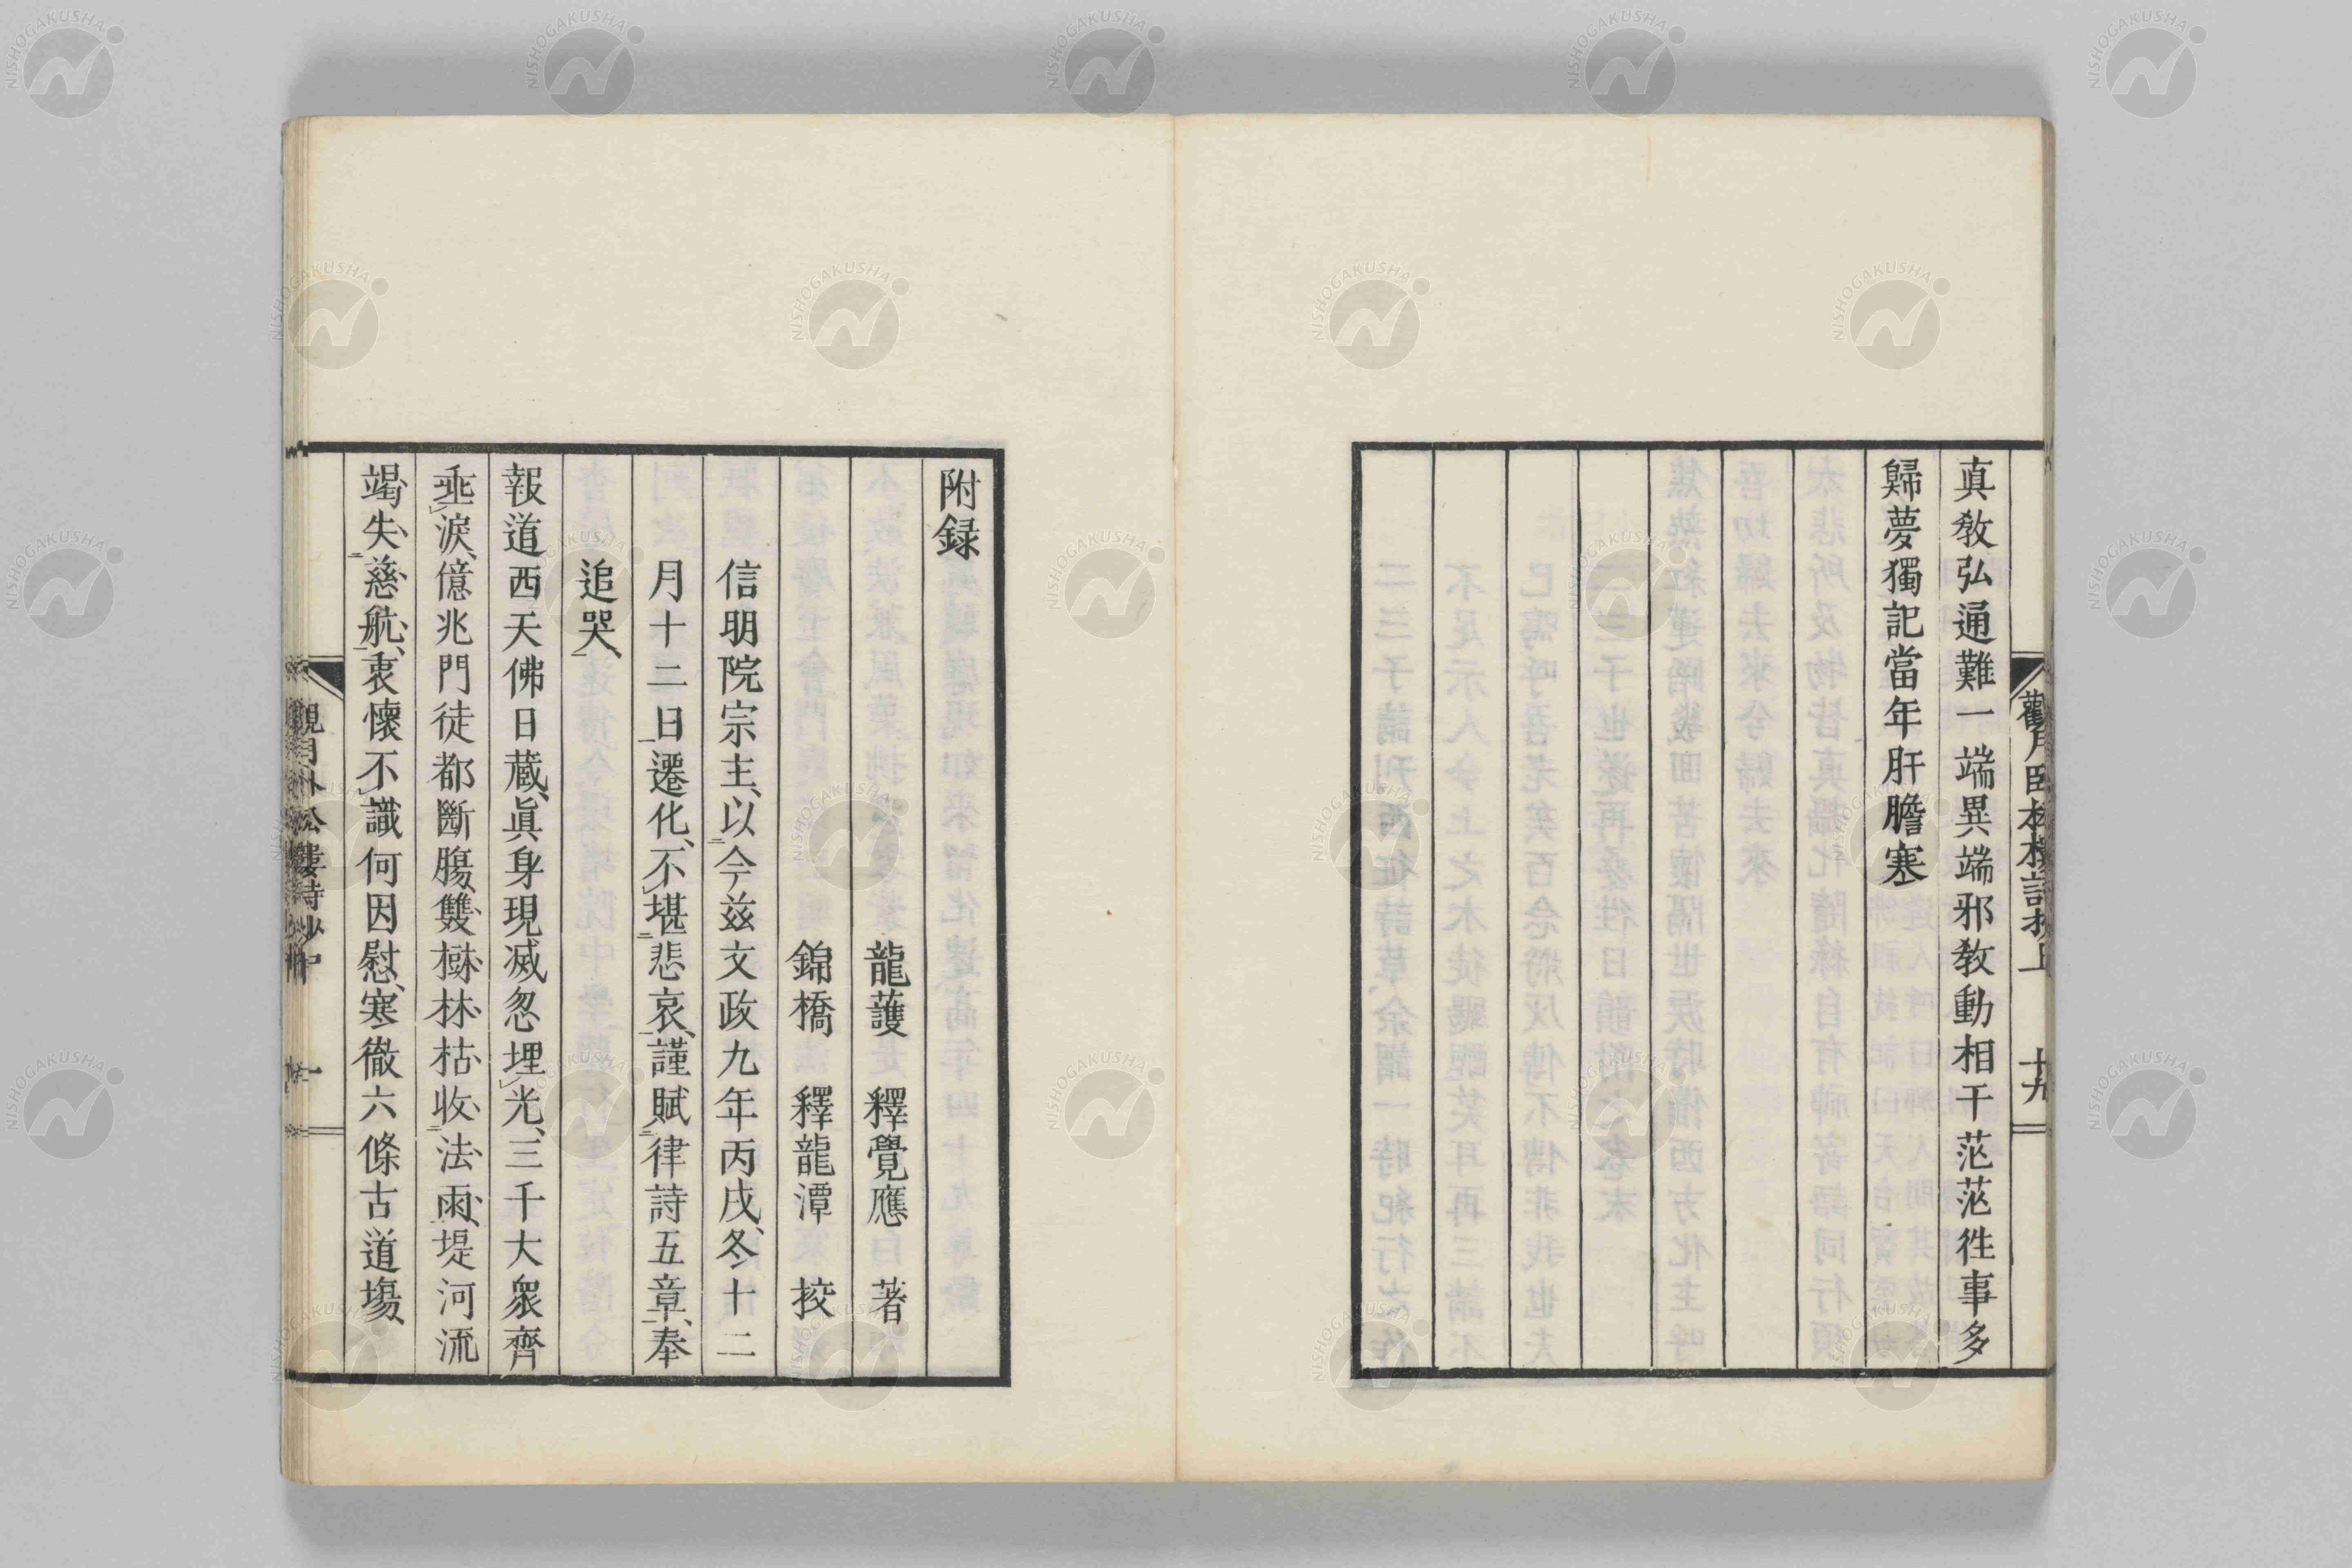 真教弘通難一端異端邪教動相干茫茫徃事多
歸夢獨記當年肝膽寒
十九
附録
龍護 釋覺應 著
錦橋 釋龍潭 挍
信明院宗主、以今茲文政九年丙戌、冬十二
月十二日遷化、不堪悲哀、謹賦律詩五章、奉
追哭、
報道西天佛日蔵、眞身現滅忽埋光、三千大衆齊
乖淚、億兆門徒都斷膓、雙樹林枯收法雨、堤河流
竭失慈航、衷懷不識何因慰、寒徹六條古道塲、
一
NISHOGAKUSHA